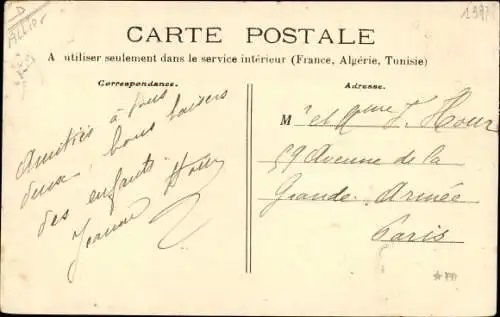 D
Allier
CARTE POSTALE
A utiliser seulement dans le service intérieur (France, Algérie, Tunisie)
Correspondance.
Amitiés à tous
deux, bons baisers
des enfants
Jeanne
Adresse.
Mr et Mme J. Hour
59 Avenue de la
Grande Armée
Paris